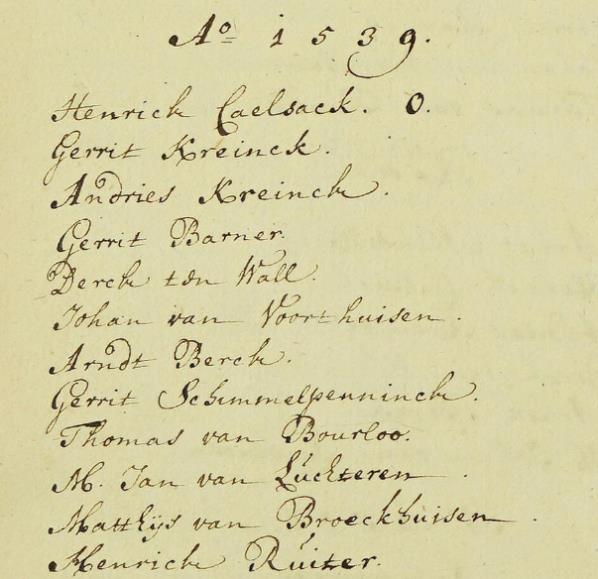 Aº 1539.
Henrick Caelsack. O.
Gerrit Kreinck.
Andries Kreinck.
Gerrit Barner.
Derck ten Wall.
Johan van Voorthuisen.
Arndt Berck.
Gerrit Schimmelpenninck.
Thomas van Bourloo.
M. Jan van Lúchteren.
Matthijs van Broeckhuisen.
Henrick Ruiter.